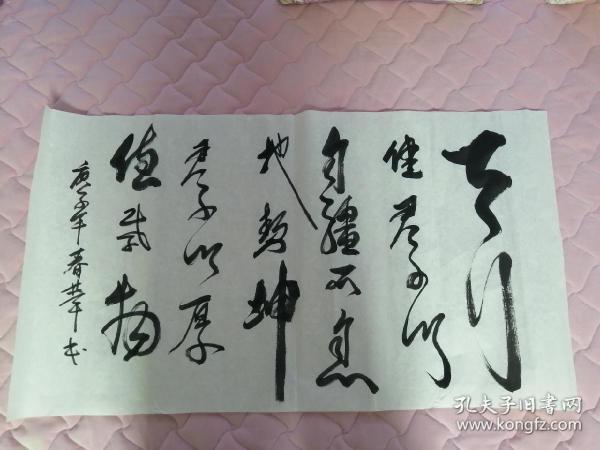 天行
健君子以
自疆不息
地势坤
君子以厚
德载物
庚子年春华书
孔夫子旧书网
www.kongfz.com